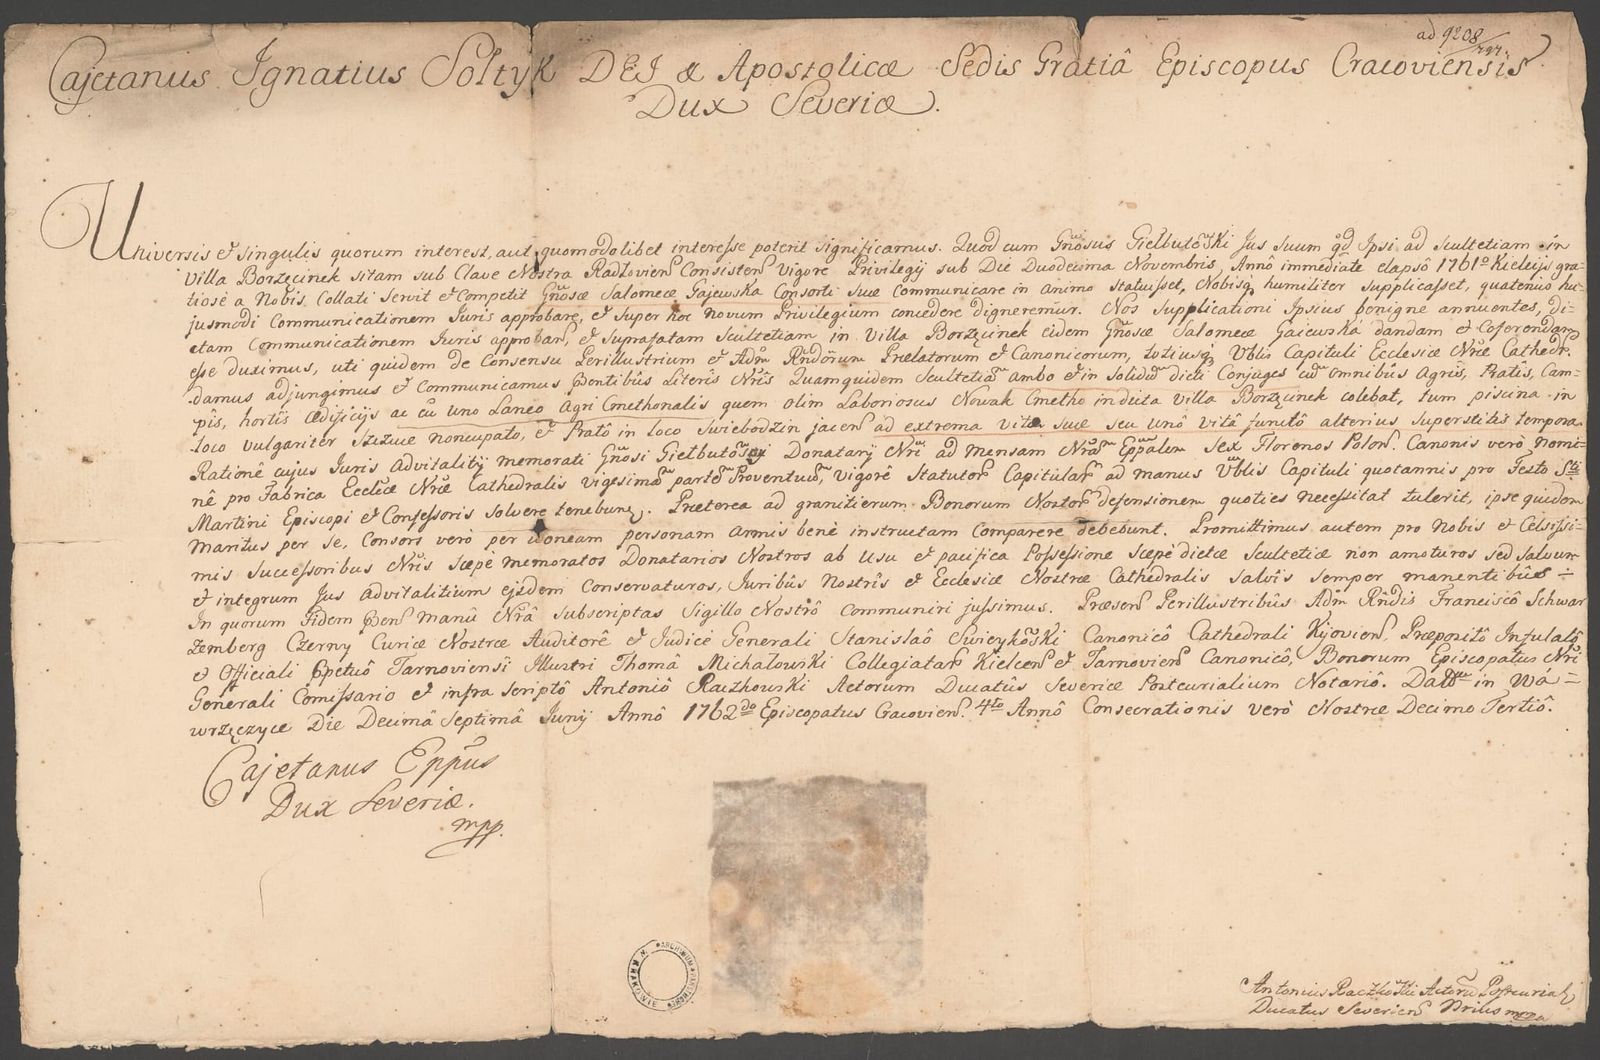 ad 9208/797.
Cajetanus Ignatius Sołtyk DEI & Apostolicæ Sedis Gratiâ Episcopus Cracoviensis
Dux Severiæ.
Universis et singulis quorum interest, aut quomodolibet interesse poterit significamus. Quod cum Gn̄osus Giełbutowski Jus Suum qd̄ Ipsi ad Scultetiam in
Villa Borzęcinek sitam sub Clave Nostra Radłovien̄ Consisten̄ vigore Privilegij sub Die Duodecima Novembris Annô immediate elapsô 1761º Kieleijs gra-
tiose a Nobis Collati Servit et Competit Gn̄osæ Salomeæ Gajewska Consorti Suæ Communicare in animo Statuisset, Nobisq humiliter Supplicasset, quatenus hu-
jusmodi Communicationem Juris approbare, et super hoc novum Privilegium concedere digneremur. Nos Supplicationi Ipsius benigne annuentes, di-
ctam Communicationem Juris approban̄, et Suprafatam Scultetiam in Villa Borzęcinek eidem Gn̄osæ Salomeæ Gaiewská dandam et Coferendam
esse duximus, uti quidem de Consensu Perillustrium et Adm̄ Rn̄dorum Prælatorum et Canonicorum, totiusq Vblis Capituli Ecclesiæ Nr̄æ Cathedr.
damus adjungimus et Communicamus p̄ntibûs Literis Nr̄is Quamquidem Scultetiam ambo et in solidum dicti Conjuges cum omnibûs Agris, Pratis, Cam-
pis, hortis ædificijs ac cū uno Laneo Agri Cmethonalis quem olim Laboriosus Nowak Cmetho in dicta Villa Borzęcinek colebat, tum piscina in
loco vulgariter Szezwe noncupato, et Pratô in loco Swiebodzin jacen̄ ad extrema vitæ suæ seu unô vitâ functô alterius superstitis tempora.
Ratione cujus Juris advitalitij memorati Gn̄osi Giełbutowski Donatarij Nr̄i ad mensam Nr̄am Eppalem Sex Florenos Polon̄. Canonis verò nomi-
nê pro Fabrica Ecclæ Nr̄æ Cathedralis vigesimā partē Proventuū, vigorê Statutor̄ Capitular̄ ad manus Vblis Capituli quotannis pro Festo S̄ti
Martini Episcopi et Confessoris solvere tenebunt. Præterea ad granitierum Bonorum Nostror̄ defensionem quoties necessitat tulerit, ipse quidem
Maritus per se, Consors verò per idoneam personam armis benè instructam comparere debebunt. Promittimus autem pro Nobis et Celsissi-
mis Successoribus Nr̄is sæpè memoratos Donatarios Nostros ab Usu et pacifica Possessione sæpè dictæ Scultetiæ non amoturos sed salvum
et integrum Jus Advitalitium ejsdem Conservaturos, Juribûs Nostris et Ecclesiæ Nostræ Cathedralis salvis semper manentibûs÷
In quorum Fidem p̄sen̄ manû Nr̄â subscriptas Sigillo Nostrô communiri jussimus. Præsen̄ Perillustribûs Adm̄ Rn̄dis Franciscô Schwar
zemberg Czerny Curiæ Nostræ Auditorê et Judicê Generali Stanislaô Swieykowski Canonicô Cathedrali Kijovien̄, Præpositô Infulatô
et Officiali ppetuô Tarnoviensi Illustri Thomâ Michałowski Collegiatar̄ Kielcen̄ et Tarnovien̄ Canonicô, Bonorum Episcopatus Nr̄i
Generali Comissario et infra scriptô Antoniô Raczkowski Actorum Ducatûs Severiæ Postcurialium Notariô. Datum in Wa=
wrzęczyce Die Decimâ Septimâ Junij Annô 1762do Episcopatus Cracovien̄. 4to Annô Consecrationis verò Nostræ Decimo Tertiô.
Cajetanus Eppus
Dux Severiæ.
mpp.
ARCHIWUM PAŃSTWOWE W KRAKOWIE
Antonius Raczkowski Actorū Postcurial
Ducatus Severien̄ Nrius mppa